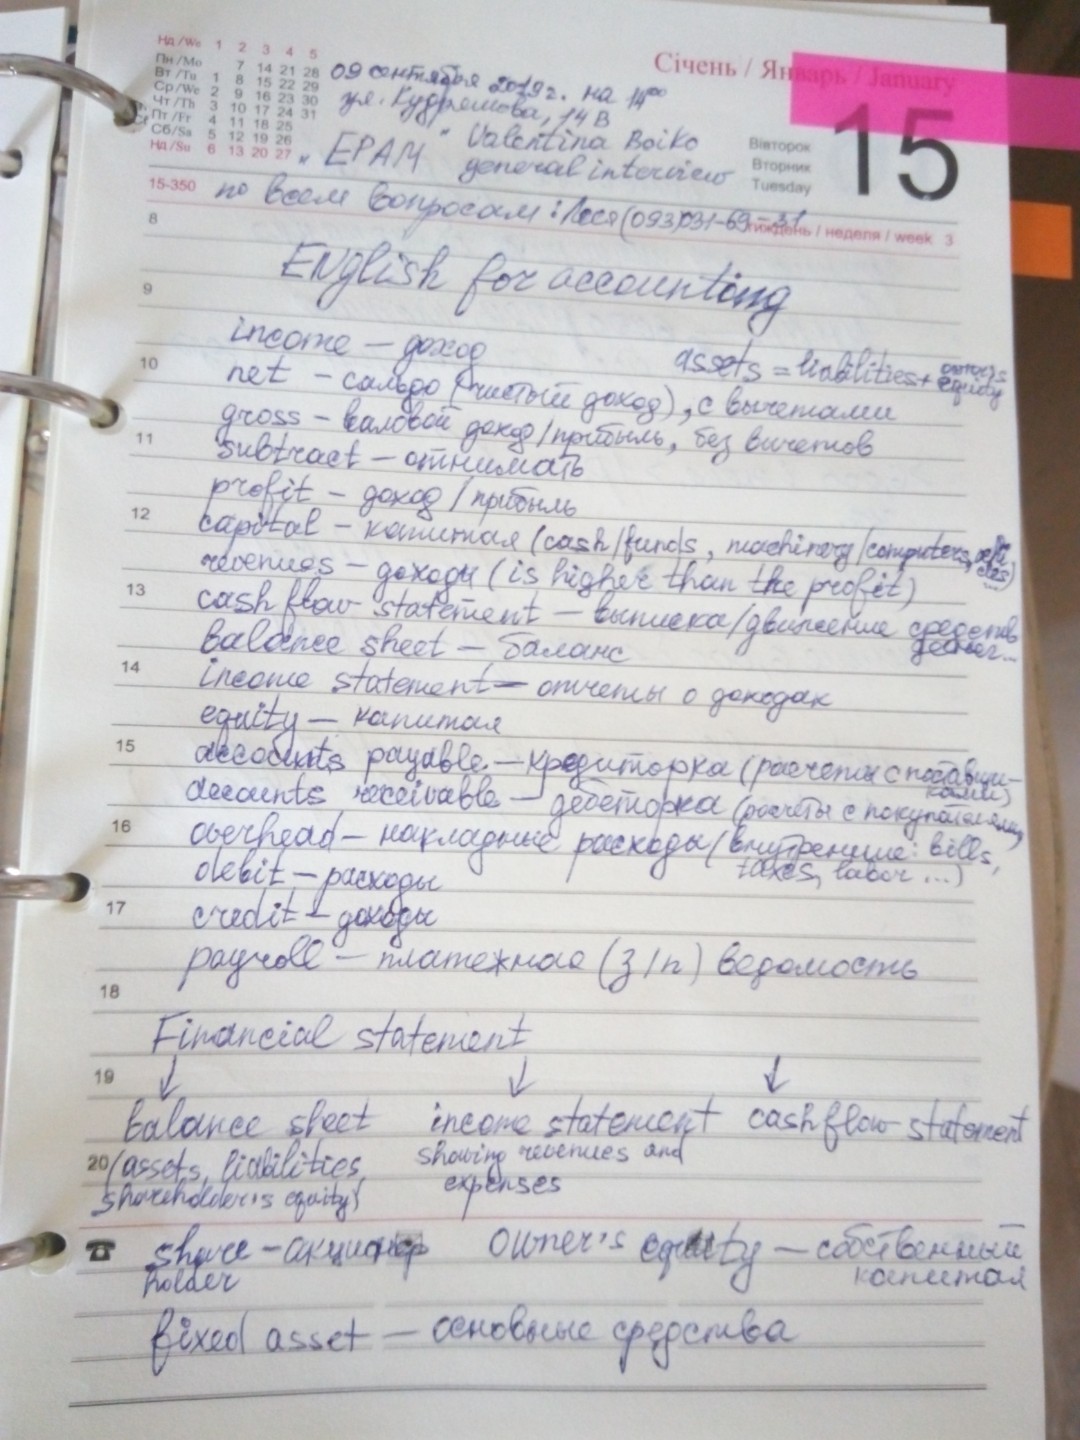 Нд /We 1 2 3 4 5
Пн /Mo 7 14 21 28
Вт /Tu 1 8 15 22 29
Ср /We 2 9 16 23 30
Чт /Th 3 10 17 24 31
Пт /Fr 4 11 18 25
Сб/Sa 5 12 19 26
Нд /Su 6 13 20 27
Січень / Январь / January
15
Вівторок
Вторник
Tuesday
09 сентября 2019 г. на 14⁰⁰
ул. Кудряшова, 14 В
"EPAM" Valentina Boiko
general interview
15-350 по всем вопросам: Леся (093)031-69-31
тиждень / неделя / week 3
8
English for accounting
9
income – доход
assets = liabilities + owner's equity
10
net – сальдо (чистый доход), с вычетами
gross – валовой доход/прибыль, без вычетов
11
subtract – отнимать
profit – доход / прибыль
12
capital – капитал (cash/funds, machinery/computers,
revenues – доходы (is higher than the profit)
13
cash flow statement – выписка/движение средств
денег...
balance sheet – баланс
14
income statement – отчеты о доходах
equity – капитал
15
accounts payable – кредиторка (расчеты с поставщи-
ками)
accounts receivable – дебеторка (расчёты с покупателями)
16
overhead – накладные расходы (внутренние: bills,
taxes, labor ...)
debit – расходы
17
credit – доходы
payroll – платежная (з/п) ведомость
18
Financial statement
19
↓ ↓ ↓
balance sheet income statement cash flow statement
20
(assets, liabilities, showing revenues and
shareholder's equity) expenses
share – акционер owner's equity – собственный
holder капитал
fixed asset – основные средства